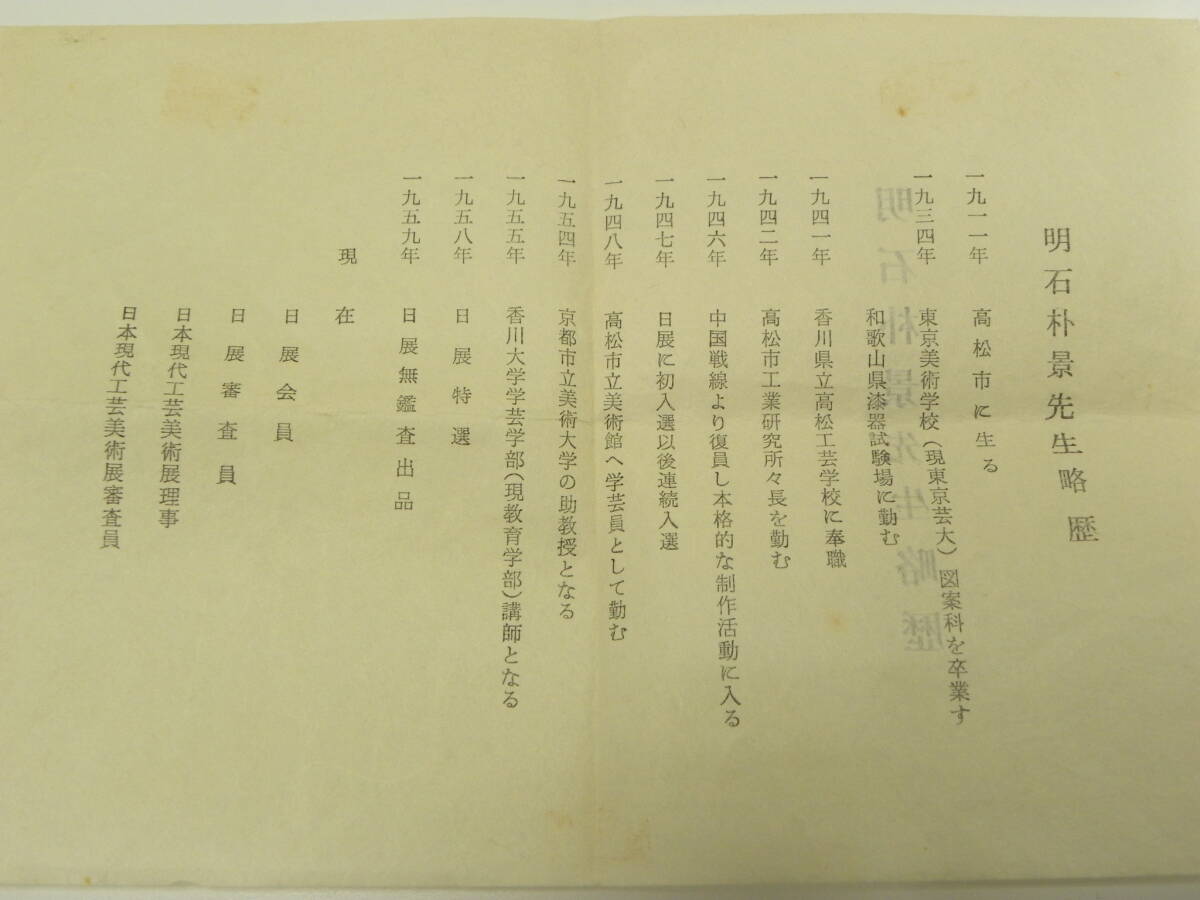 明石朴景先生略歴
一九一一年 高松市に生る
一九三四年 東京美術学校(現東京芸大)図案科を卒業す
和歌山県漆器試験場に勤む
一九四一年 香川県立高松工芸学校に奉職
一九四二年 高松市工業研究所々長を勤む
一九四六年 中国戦線より復員し本格的な制作活動に入る
一九四七年 日展に初入選以後連続入選
一九四八年 高松市立美術館へ学芸員として勤む
一九五四年 京都市立美術大学の助教授となる
一九五五年 香川大学学芸学部(現教育学部)講師となる
一九五八年 日展特選
一九五九年 日展無鑑査出品
現在
日展会員
日展審査員
日本現代工芸美術展理事
日本現代工芸美術展審査員